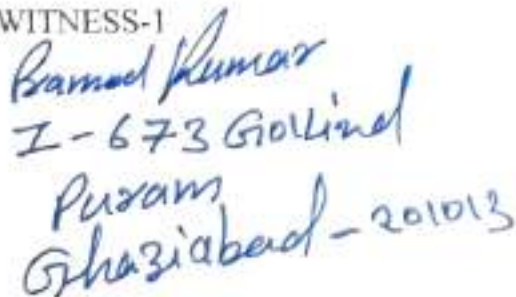 WITNESS-1
Pramod Kumar
I-673 Govind
Puram
Ghaziabad-201013